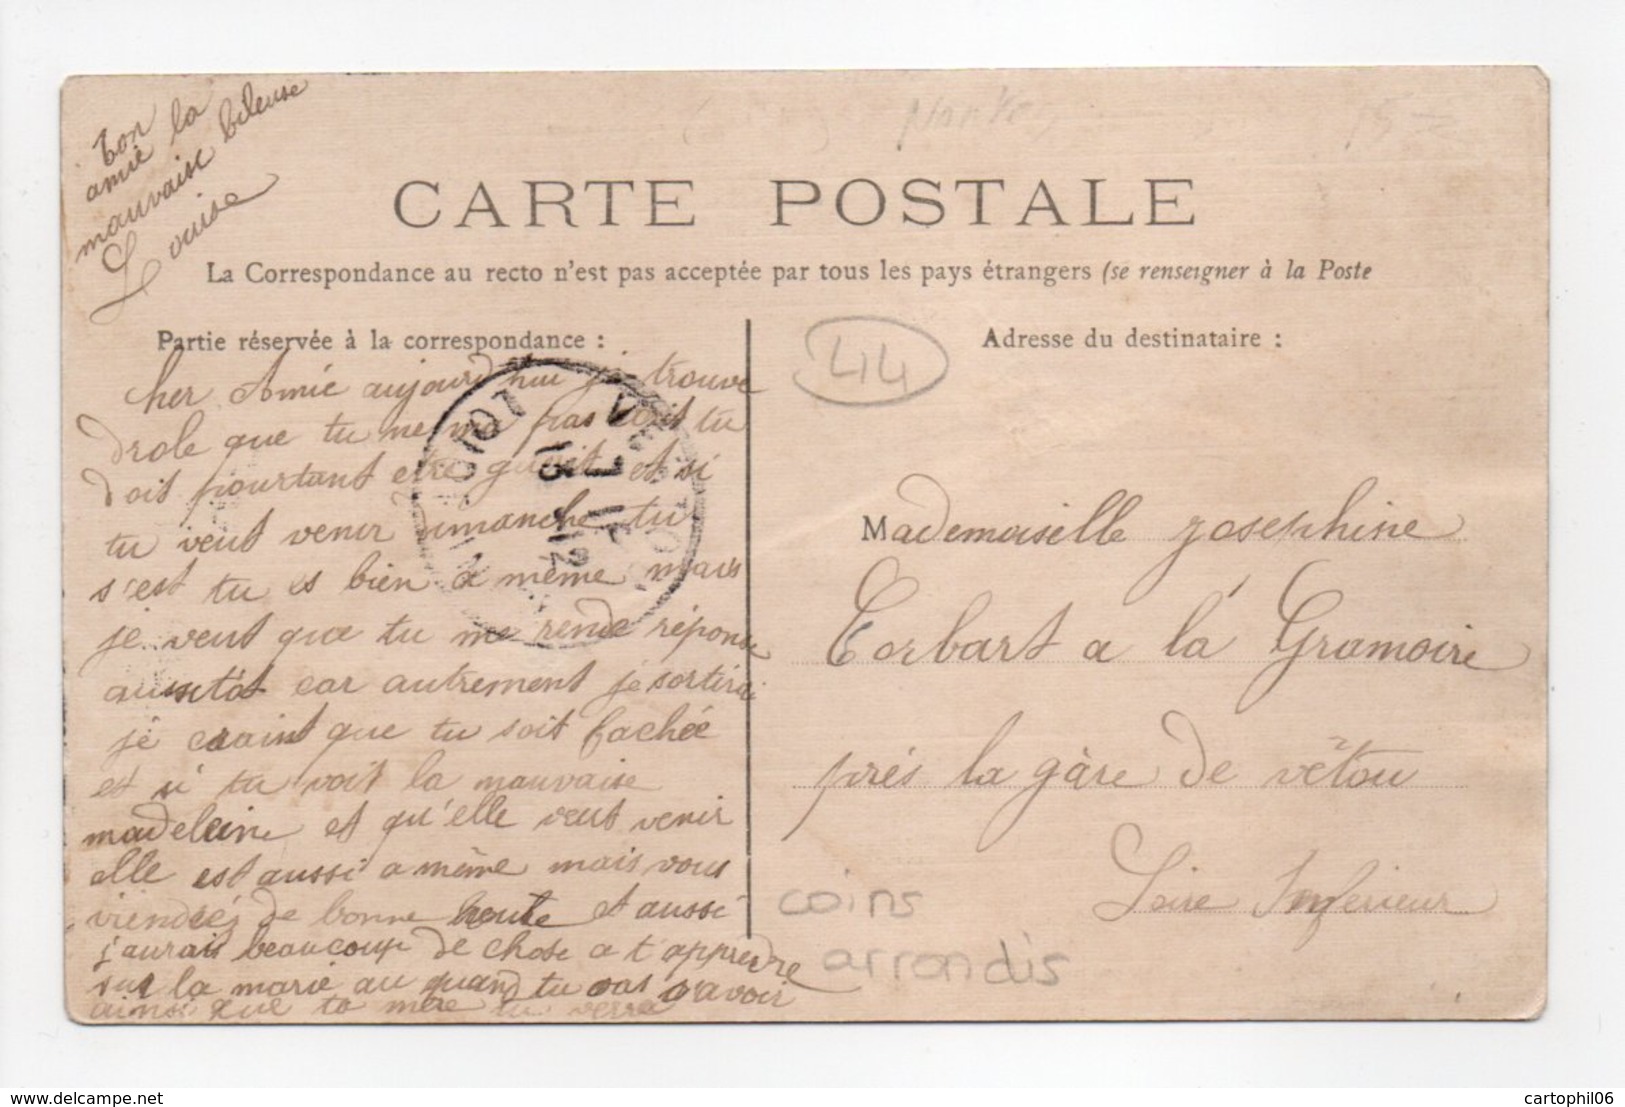 ton
amie la
mauvaise bileuse
Louise
Nantes
CARTE POSTALE
La Correspondance au recto n'est pas acceptée par tous les pays étrangers (se renseigner à la Poste
Partie réservée à la correspondance :
Adresse du destinataire :
44
cher Amie aujourd'hui je trouve
drole que tu ne m'a pas écrit tu
doit pourtant etre guerit et si
tu veut venir dimanche tu
s'est tu es bien a même mais
je veut que tu me rende réponse
aussitot car autrement je sortirai
je craint que tu soit fachée
et si tu voit la mauvaise
madeleine et qu'elle veut venir
elle est aussi a même mais vous
viendrés de bonne heure et aussi
j'aurais beaucoup de chose a t'apprendre
sur la marie au quand tu vas savoir
ainsi que ta mère tu verra
Mademoiselle Josephine
Corbart a la Gramoire
près la gàre de vêtou
Loire Inferieur
coins
arrondis
cartophil06